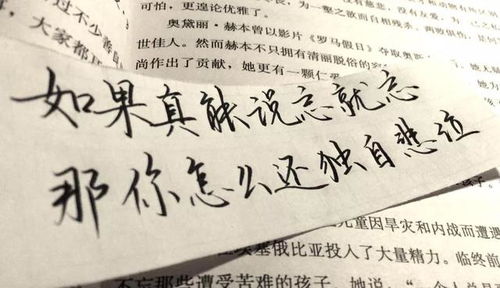 过不少善
大家都
可怕，更遑论优雅了。
奥黛丽·赫本曾以影片《罗马假日》夺取奥
世佳人。然而赫本不只拥有清丽脱俗的
尚作出了贡献，她更有一颗仁
如果真能说忘就忘
那你怎么还独自悲泣
儿童因旱灾和内战而遭遇
埃塞俄比亚投入了大量精力。临终前
不忘那些遭受苦难的孩子。她说：“一个人总是